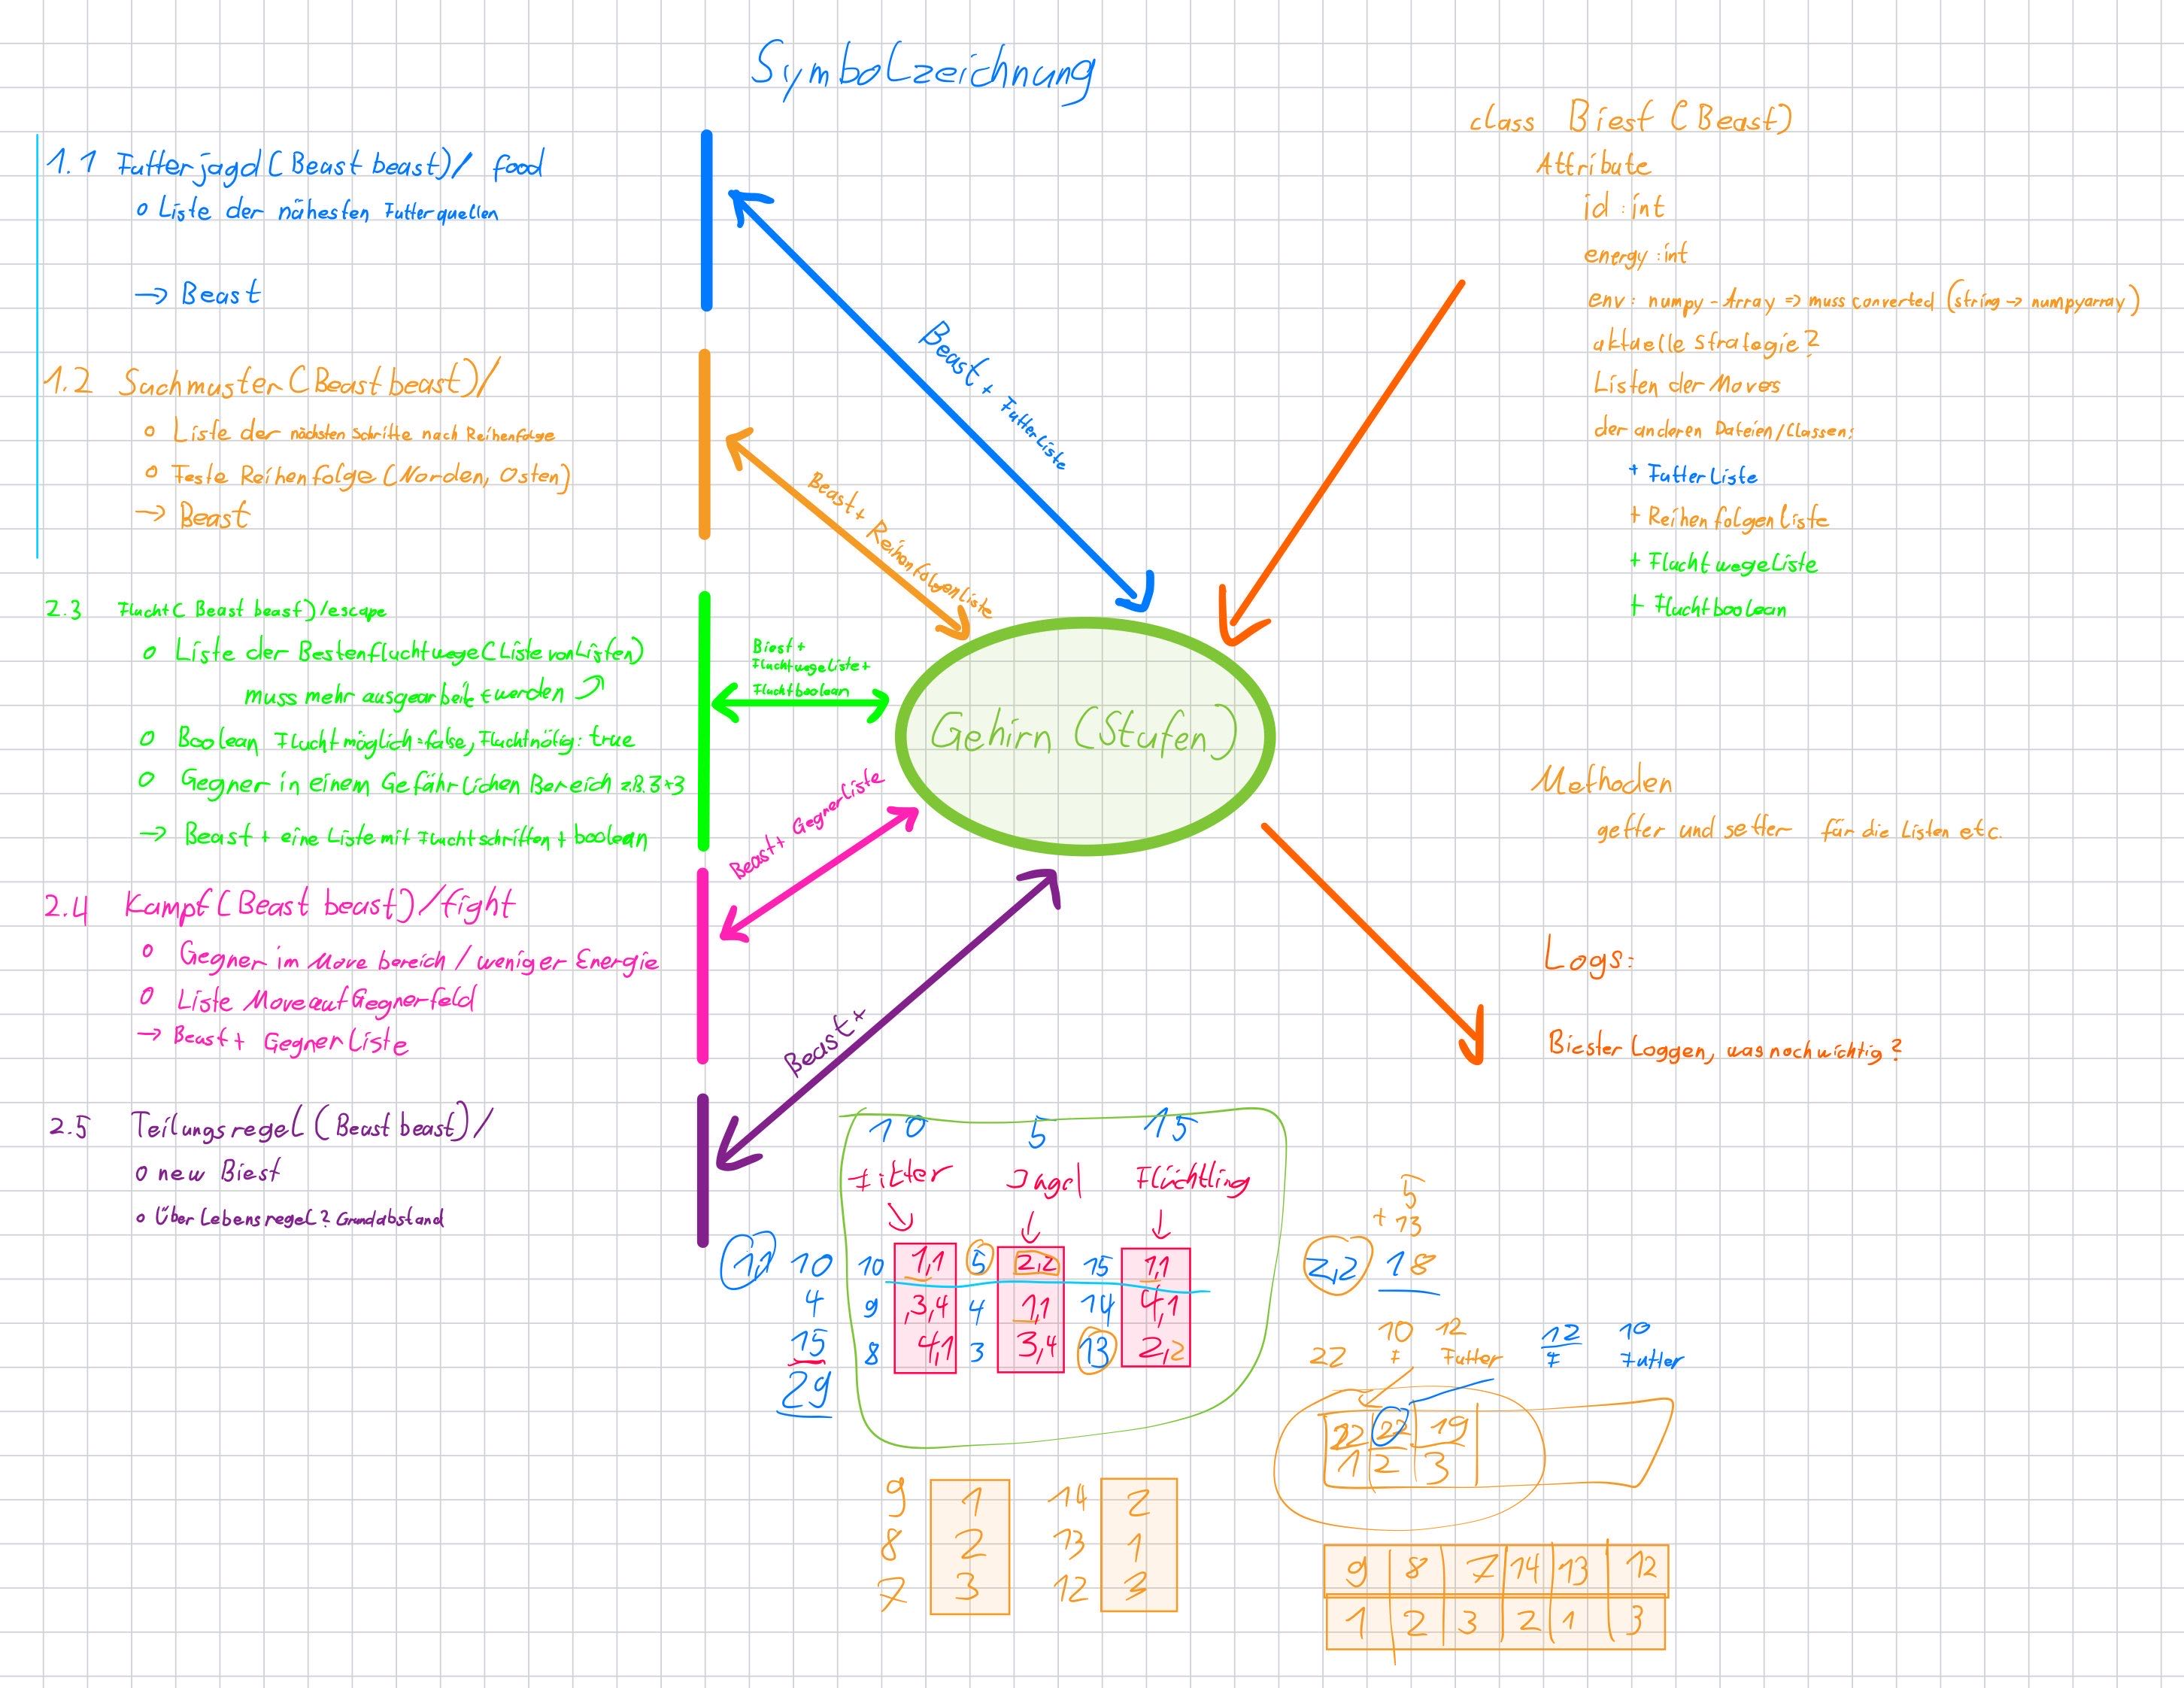 Symbolzeichnung
1.1 Futterjagd (Beast beast)/ food
o Liste der nähesten Futterquellen
→ Beast
1.2 Suchmuster (Beast beast)/
o Liste der nächsten Schritte nach Reihenfolge
o Feste Reihenfolge (Norden, Osten)
→ Beast
2.3 Flucht (Beast beast)/escape
o Liste der Bestenfluchtwege (Liste von Listen)
muss mehr ausgearbeitet werden
o Boolean Fluchtmöglich=false, Fluchtnötig: true
o Gegner in einem Gefährlichen Bereich z.B. 3+3
→ Beast + eine Liste mit Fluchtschritten + boolean
2.4 Kampf (Beast beast)/fight
o Gegner im Move bereich / weniger Energie
o Liste Move auf Gegnerfeld
→ Beast + GegnerListe
2.5 Teilungsregel (Beast beast)/
o new Biest
o ÜberLebensregel? Grundabstand
Beast + FutterListe
Beast + ReihenfolgenListe
Biest +
FluchtwegeListe +
Fluchtboolean
Beast + GegnerListe
Beast +
Gehirn (Stufen)
class Biest (Beast)
Attribute
id : int
energy : int
env : numpy-Array => muss converted (string → numpyarray)
aktuelle Strategie?
Listen der Moves
der anderen Dateien/Classen:
+ FutterListe
+ ReihenfolgenListe
+ FluchtwegeListe
+ Fluchtboolean
Methoden
getter und setter für die Listen etc.
Logs:
Biester Loggen, was noch wichtig?
10 5 15
Jagd Flüchtling
1,1 10 10 1,1 5 2,2 15 1,1
4 9 ,3,4 4 1,1 14 4,1
15 8 4,1 3 3,4 13 2,2
29
5
+ 13
2,2 18
10 12 12 10
22 F Futter F Futter
22 22 19
1 2 3
9 1 14 2
8 2 13 1
7 3 12 3
9 8 7 14 13 12
1 2 3 2 1 3